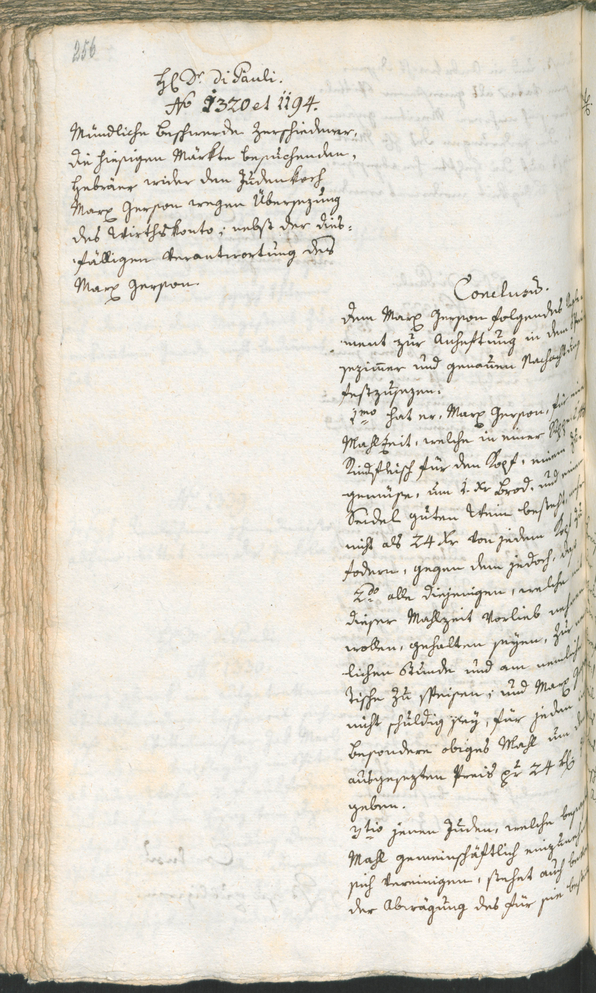 256
H. Dr. di Pauli.
No 1320 et 1194.
Mündliche Beschwerde Zerschiedener,
die hiesigen Märkte besuchenden,
Hebräer wider den Judenkoch
Marx Gerson wegen Übersezung
des Wirthskonto; nebst der dies-
fälligen Verantwortung des
Marx Gerson.
Conclusum.
dem Marx Gerson folgendes
ment zur Anheftung in dem
sezimmer und genauen Nachachtung
festzusezen.
1mo hat er, Marx Gerson, für eine
Mahlzeit, welche in einer
Rindfleisch für den Kopf, einem
gemüse, um 1. Xr Brod, und einem
Seidel guten Wein besteht,
nicht als 24 Xr von jedem Kopf zu
fodern, gegen dem jedoch, daß
2do alle diejenigen, welche mit
dieser Mahlzeit Vorlieb nehmen
wollen, gehalten seyen, zur
lichen Stunde und am nemlichen
Tische zu speisen; und Marx
nicht schuldig sey, für jeden
besonders obiges Mahl um den
ausgesezten Preis pr 24 Xr
geben.
3tio jenen Juden, welche
Mahl gemeinschäftlich einzunehmen
sich vereinigen, stehet auch
der Abwägung des für sie